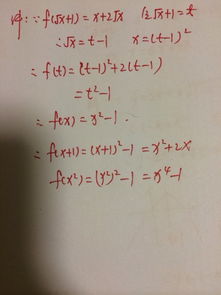 解:∵f(√x+1)=x+2√x 令√x+1=t
∴√x=t-1 x=(t-1)²
∴f(t)=(t-1)²+2(t-1)
=t²-1
∴f(x)=x²-1.
∴f(x+1)=(x+1)²-1=x²+2x
f(x²)=(x²)²-1=x⁴-1